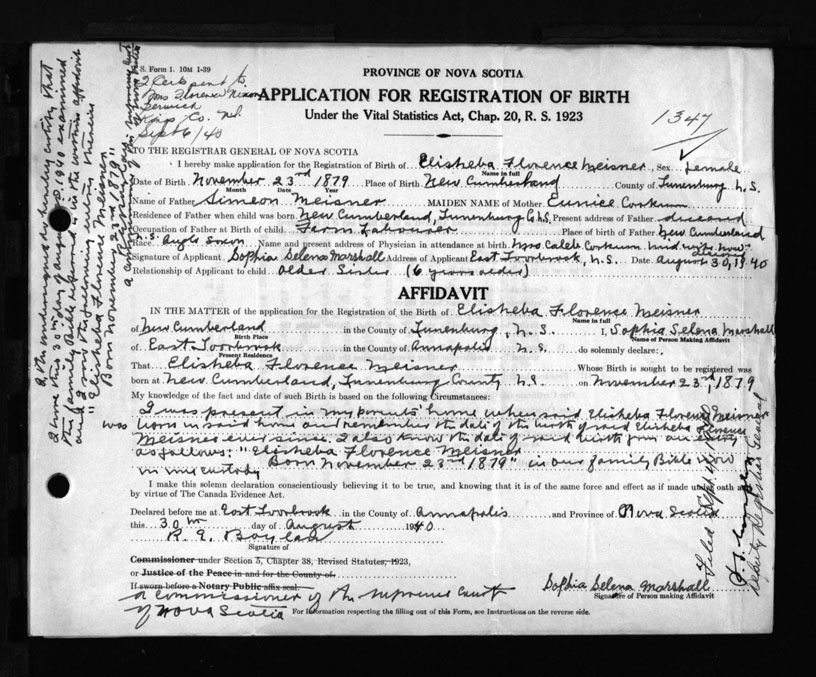 S. Form 1. 10M 1-39
2 Certs sent to
Mrs Florence Nixon
Berwick
Kings Co. N.S.
Sept 6/40
PROVINCE OF NOVA SCOTIA
APPLICATION FOR REGISTRATION OF BIRTH
Under the Vital Statistics Act, Chap. 20, R. S. 1923
1347
TO THE REGISTRAR GENERAL OF NOVA SCOTIA
I hereby make application for the Registration of Birth of Elisheba Florence Meisner, Sex Female
Name in full
Date of Birth November 23rd 1879 Place of Birth New Cumberland County of Lunenburg N.S.
Month Date Year
Name of Father Simeon Meisner MAIDEN NAME of Mother Eunice Corkum
Residence of Father when child was born New Cumberland, Lunenburg Co N.S. Present address of Father deceased
Occupation of Father at Birth of child Farm Labourer Place of birth of Father New Cumberland
N.S.
Race Anglo Saxon Name and present address of Physician in attendance at birth Mrs Caleb Corkum mid wife now
deceased
Signature of Applicant Sophia Selena Marshall Address of Applicant East Torbrook, N.S. Date August 30, 1940
Relationship of Applicant to child older Sister (6 years older)
AFFIDAVIT
IN THE MATTER of the application for the Registration of the Birth of Elisheba Florence Meisner
Name in full
of New Cumberland in the County of Lunenburg, N.S. I, Sophia Selena Marshall
Birth Place Name of Person Making Affidavit
of East Torbrook in the County of Annapolis N.S. do solemnly declare:
Present Residence
That Elisheba Florence Meisner Whose Birth is sought to be registered was
born at New Cumberland, Lunenburg County N.S. on November 23rd, 1879
My knowledge of the fact and date of such Birth is based on the following Circumstances:
I was present in my parents' home when said Elisheba Florence Meisner
was born in said home and remember the date of the birth of said Elisheba Florence
Meisner ever since. I also know the date of said birth from an entry
as follows: "Elisheba Florence Meisner
Born November 23rd 1879" in our family Bible now
in my custody
I make this solemn declaration conscientiously believing it to be true, and knowing that it is of the same force and effect as if made under oath and
by virtue of The Canada Evidence Act.
Declared before me at East Torbrook in the County of Annapolis and Province of Nova Scotia
this 30th day of August 1940
R. A. Boylan
Signature of
Commissioner under Section 5, Chapter 38, Revised Statutes, 1923,
or Justice of the Peace in and for the County of
If sworn before a Notary Public affix seal.
a Commissioner of the Supreme Court
of Nova Scotia
Sophia Selena Marshall
Signature of Person making Affidavit
For Information respecting the filling out of this Form, see Instructions on the reverse side.
I, the undersigned do hereby certify that
I have this 30th day of August A.D. 1940 examined
the family Bible referred to in the within affidavit
and I saw the following entry therein
"Elisheba Florence Meisner
Born November 23rd 1879"
a Commissioner of the Supreme Court
of Nova Scotia
Filed Sept
Deputy Registrar General